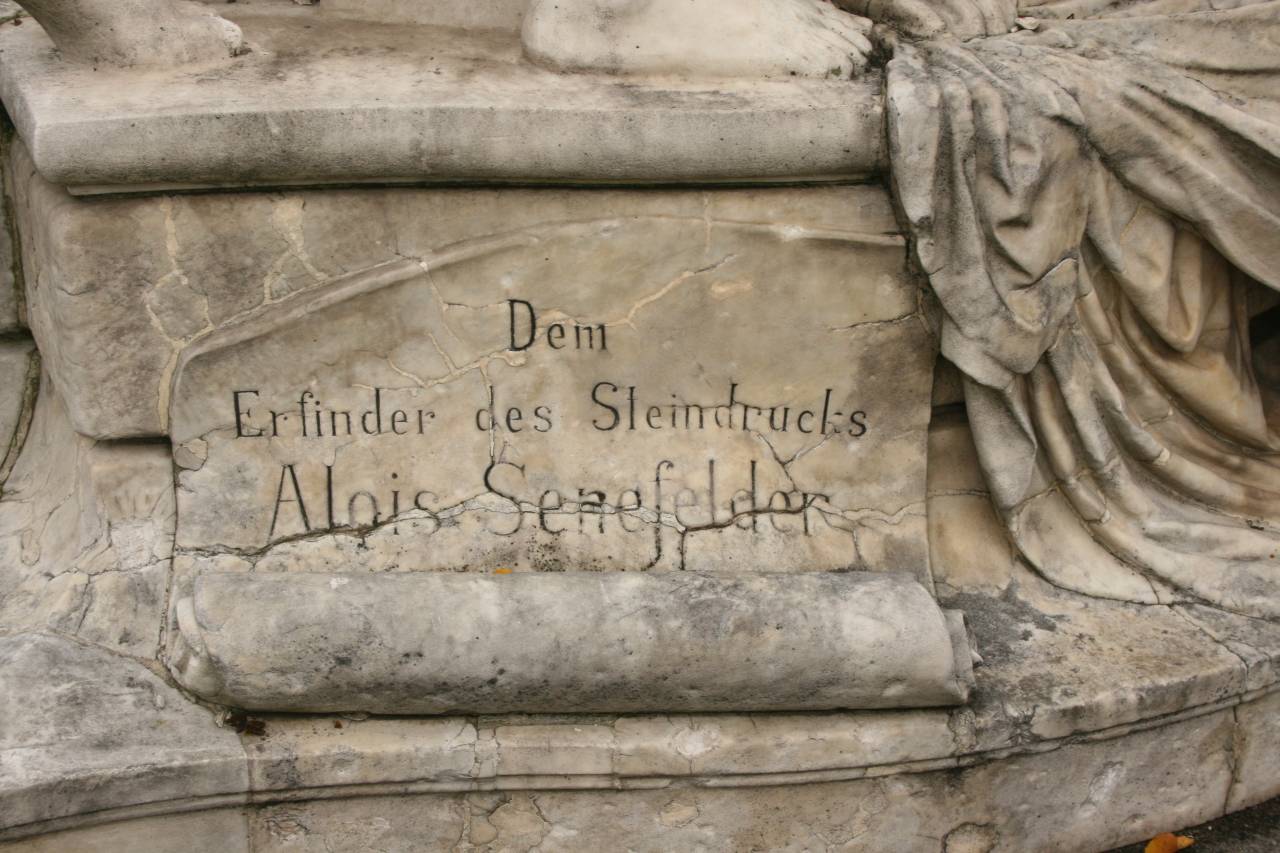 Dem
Erfinder des Steindrucks
Alois Senefelder